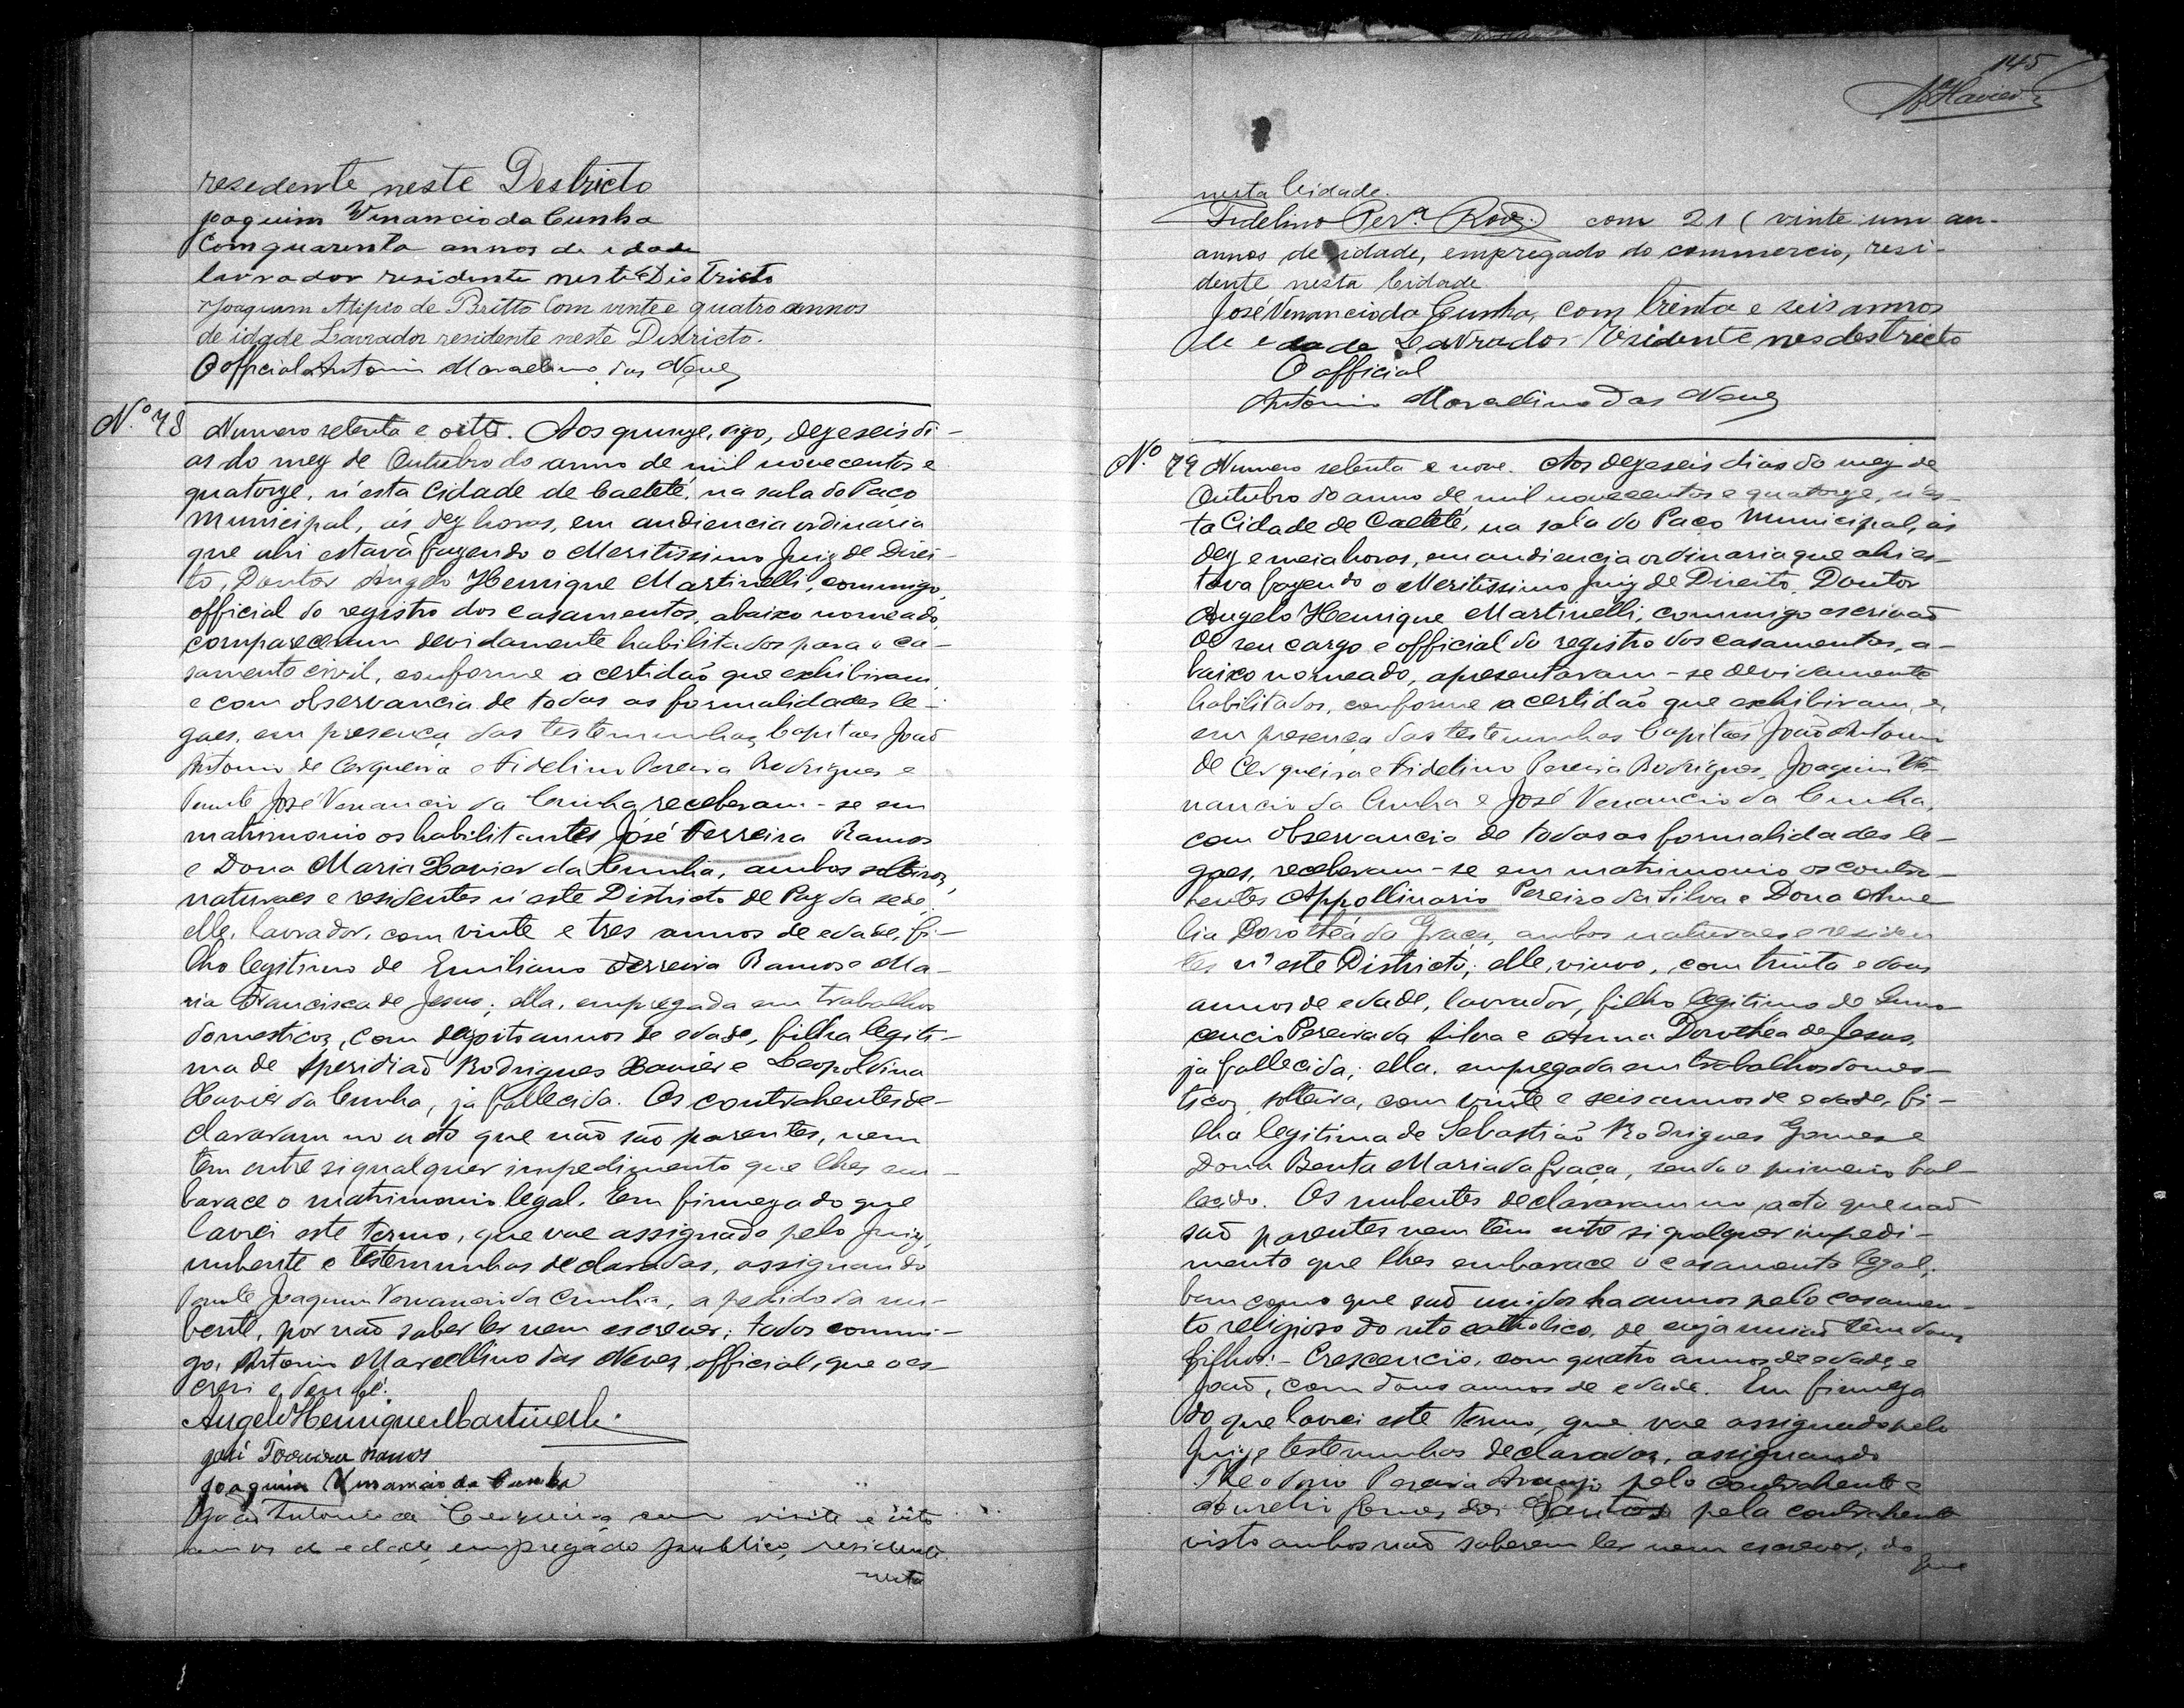 resedente neste Destricto
Joaquim Venancio da Cunha
Com quarenta annos de idade
lavrador residente neste Districto
Joaquim Alipio de Britto Com vinte e quatro annos
de idade Lavrador residente neste Districto.
O official Antonio Marcelino das Neves
Nº 78 Numero setenta e oitto. Aos quinze, digo, dezeseis di-
as do mez de Outubro do anno de mil novecentos e
quatorze, n'esta Cidade de Caeteté, na sala do Paço
Municipal, ás dez horas, em audiencia ordinaria
que ahi estava fazendo o Meritissimo Juiz de Direi-
to, Doutor Angelo Henrique Martinelli, commigo,
official do registro dos casamentos, abaixo nomeado,
compareceram devidamente habilitados para o ca-
samento civil, conforme a certidão que exhibiram,
e com observancia de todas as formalidades le-
gaes, em presença das testemunhas Capitão João
Antonio de Cerqueira e Fidelino Pereira Rodrigues e
José Venancio da Cunha receberam-se em
matrimonio os habilitantes José Ferreira Ramos
e Dona Maria Xavier da Cunha, ambos solteiros,
naturaes e residentes n'este Districto de Paz da sede;
elle, lavrador, com vinte e tres annos de edade, fi-
lho legitimo de Emiliano Ferreira Ramos e Ma-
ria Francisca de Jesus; ella, empregada em trabalhos
domesticos, com dezoito annos de edade, filha legiti-
ma de Speridião Rodrigues Xavier e Leopoldina
Xavier da Cunha, já fallecida. Os contrahentes de-
clararam no acto que não são parentes, nem
têm entre si qualquer impedimento que lhes em-
barace o matrimonio legal. Em firmeza do que
lavrei este termo, que vae assignado pelo Juiz,
nubente e testemunhas declaradas, assignando
Joaquim Venancio da Cunha, a pedido da nu-
bente, por não saber ler nem escrever; todos commi-
go, Antonio Marcellino das Neves, official, que o es-
crevi e dou fé.
Angelo Henrique Martinelli.
José Ferreira Ramos
Joaquim Venancio da Cunha
João Antonio de Cerqueira com vinte e oito
annos de edade, empregado publico, residente
nesta
145
Xavier
nesta Cidade.
Fidelino Perª Rodz. com 21 (vinte um an-
annos de idade, empregado do commercio, resi-
dente nesta Cidade
José Venancio da Cunha, com trinta e seis annos
de edade Lavrador Residente nesdestricto
O official
Antonio Marcellino das Neves
Nº 79 Numero setenta e nove. Aos dezeseis dias do mez de
Outubro do anno de mil novecentos e quatorze, n'es-
ta Cidade de Caeteté, na sala do Paço Municipal, ás
dez e meia horas, em audiencia ordinaria que ahi es-
tava fazendo o Meritissimo Juiz de Direito, Doutor
Angelo Henrique Martinelli, commigo escrivão
de seu cargo e official do registro dos casamentos, a-
baixo nomeado, apresentaram-se devidamente
habilitados, conforme a certidão que exhibiram, e,
em presença das testemunhas Capitão João Antonio
de Cerqueira e Fidelino Pereira Rodrigues, Joaquim Ve-
nancio da Cunha e José Venancio da Cunha,
com observancia de todas as formalidades le-
gaes, receberam-se em matrimonio os contra-
hentes Appollinario Pereira da Silva e Dona Ame
lia Dorothéa da Graça, ambos naturaes e residen
tes n'este Districto; elle, viuvo, com trinta e dous
annos de edade, lavrador, filho legitimo de Inno-
cencio Pereira da Silva e Anna Dorothéa de Jesus,
já fallecida; ella, empregada em trabalhos domes-
ticos, solteira, com vinte e seis annos de edade, fi-
lha legitima de Sebastião Rodrigues Gomes e
Dona Benta Maria da Graça, sendo o primeiro fal-
lecido. Os nubentes declararam no acto que não
são parentes nem têm entre si qualquer impedi-
mento que lhes embarace o casamento legal;
bem como que são unidos ha annos pelo casamen-
to religioso do rito catholico, de cuja união têm dous
filhos:- Crescencio, com quatro annos de edade, e
João, com dous annos de edade. Em firmeza
do que lavrei este termo, que vae assignado pelo
Juiz, e testemunhas declaradas, assignando
Theodorio Pereira Araujo pelo contrahente e
Aurelio Gomes dos Santos pela contrahente
visto ambos não saberem ler nem escrever; do
que